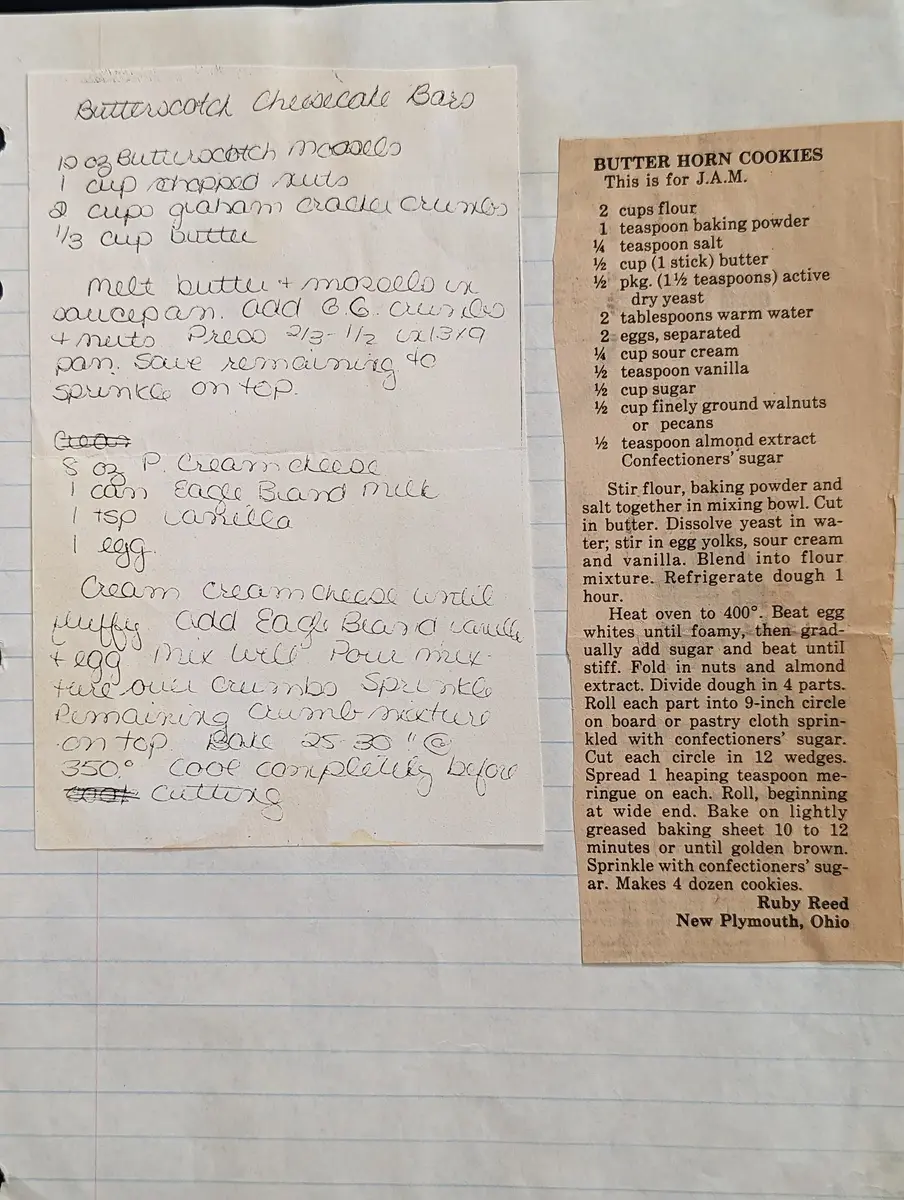 Butterscotch Cheesecake Bars
10 oz Butterscotch morsels
1 cup chopped nuts
2 cups graham cracker crumbs
1/3 cup butter
Melt butter + morsels in
saucepan. Add G.C. crumbs
+ nuts Press 2/3 - 1/2 in 13x9
pan. Save remaining to
sprinkle on top.
8 oz P. Cream cheese
1 can Eagle Brand milk
1 tsp vanilla
1 egg.
Cream cream cheese until
fluffy add Eagle Brand vanilla
+ egg mix well Pour mix-
ture over crumbs Sprinkle
Remaining Crumb mixture
on top. Bake 25-30 " @
350° Cool completely before
cutting
BUTTER HORN COOKIES
This is for J.A.M.
2 cups flour
1 teaspoon baking powder
¼ teaspoon salt
½ cup (1 stick) butter
½ pkg. (1½ teaspoons) active
dry yeast
2 tablespoons warm water
2 eggs, separated
¼ cup sour cream
½ teaspoon vanilla
½ cup sugar
½ cup finely ground walnuts
or pecans
½ teaspoon almond extract
Confectioners' sugar
Stir flour, baking powder and
salt together in mixing bowl. Cut
in butter. Dissolve yeast in wa-
ter; stir in egg yolks, sour cream
and vanilla. Blend into flour
mixture. Refrigerate dough 1
hour.
Heat oven to 400°. Beat egg
whites until foamy, then grad-
ually add sugar and beat until
stiff. Fold in nuts and almond
extract. Divide dough in 4 parts.
Roll each part into 9-inch circle
on board or pastry cloth sprin-
kled with confectioners' sugar.
Cut each circle in 12 wedges.
Spread 1 heaping teaspoon me-
ringue on each. Roll, beginning
at wide end. Bake on lightly
greased baking sheet 10 to 12
minutes or until golden brown.
Sprinkle with confectioners' sug-
ar. Makes 4 dozen cookies.
Ruby Reed
New Plymouth, Ohio